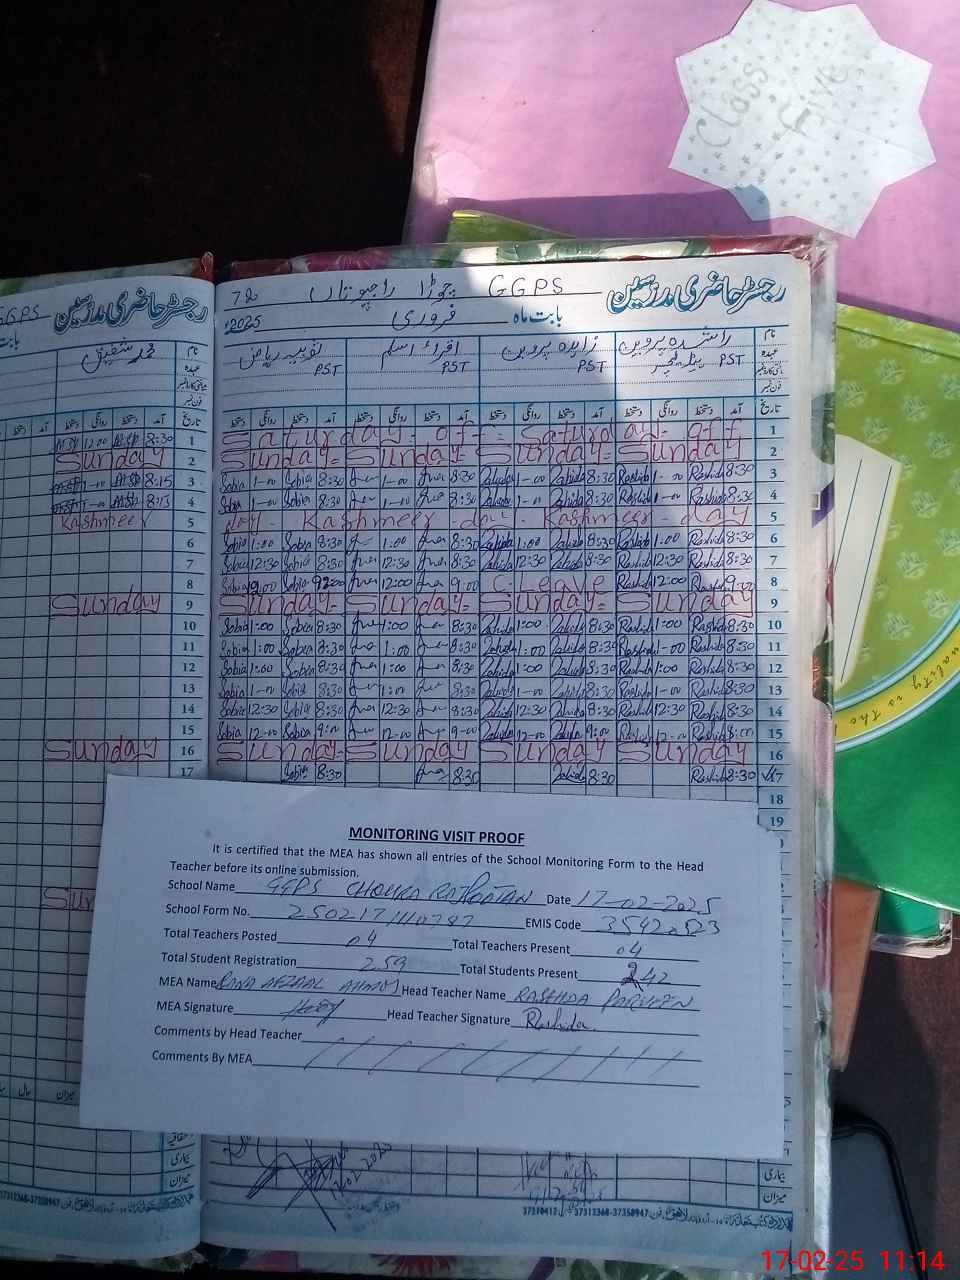 Class
Five
GGPS
رجسٹر حاضری مدرسین
72 چوڑا راجپوتاں GGPS
رجسٹر حاضری مدرسین
2025ء فروری بابت ماہ
محمد شفیق
نام
عہدہ
راشدہ پروین
ہیڈ ٹیچر PST
زاہدہ پروین
PST
اقراء اسلم
PST
ریاض
PST
نام
عہدہ
تاریخ
آمد دستخط روانگی دستخط
1 Saturday - off = Saturday - off 1
Sunday 2 Sunday = Sunday = Sunday = Sunday 2
8:15 3 Sobia 1-00 Sobia 8:30 1-00 8:30 Zahida 1-00 Zahida 8:30 Rashida 1-00 Rashida 8:30 3
8:15 4 Sobia 1-00 Sobia 8:30 1-00 8:30 Zahida 1-00 Zahida 8:30 Rashida 1-00 Rashida 8:30 4
Kashmeer 5 day - Kashmeer - day - Kashmeer - day 5
6 Sobia 1:00 Sobia 8:30 1:00 8:30 Zahida 1:00 Zahida 8:30 Rashida 1:00 Rashida 8:30 6
7 Sobia 12:30 Sobia 8:30 12:30 8:30 Zahida 12:30 Zahida 8:30 Rashida 12:30 Rashida 8:30 7
8 Sobia Sobia 12:00 9:00 C-Leave Rashida 12:00 Rashida 9:00 8
Sunday 9 Sunday = Sunday = Sunday = Sunday 9
10 Sobia 1:00 Sobia 8:30 1:00 8:30 Zahida 1:00 Zahida 8:30 Rashida 1:00 Rashida 8:30 10
11 Sobia 1:00 Sobia 8:30 1:00 8:30 Zahida 1:00 Zahida 8:30 Rashida 1-00 Rashida 8:30 11
12 Sobia 1:00 Sobia 8:30 1:00 8:30 Zahida 1:00 Zahida 8:30 Rashida 1:00 Rashida 8:30 12
13 Sobia 1-00 Sobia 8:30 1:00 8:30 Zahida 1-00 Zahida 8:30 Rashida 1-00 Rashida 8:30 13
14 Sobia 12:30 Sobia 8:30 12:30 8:30 Zahida 12:30 Zahida 8:30 Rashida 12:30 Rashida 8:30 14
15 Sobia 12-00 Sobia 9:00 12-00 9-00 Zahida 12-00 Zahida 9:00 Rashida 12-00 Rashida 8:00 15
Sunday 16 Sunday = Sunday = Sunday = Sunday 16
17 Sobia 8:30 8:30 Zahida 8:30 Rashida 8:30 17
18
19
MONITORING VISIT PROOF
It is certified that the MEA has shown all entries of the School Monitoring Form to the Head
Teacher before its online submission.
School Name GGPS CHOHRA RAJPOOTAN Date 17-02-2025
School Form No. EMIS Code
Total Teachers Posted 04 Total Teachers Present 04
Total Student Registration 259 Total Students Present 242
MEA Name RANA AFZAAL AHMAD Head Teacher Name RASHIDA PARVEEN
MEA Signature Head Teacher Signature Rashida
Comments by Head Teacher
Comments By MEA
بیماری
میزان
17-02-2025
uality is tho
17-02-25 11:14